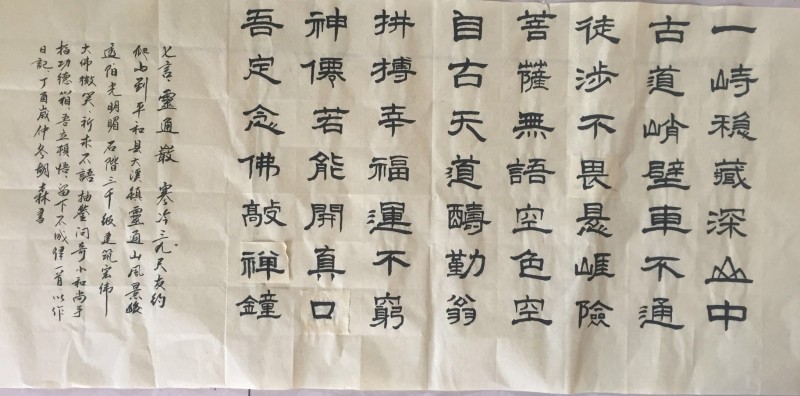 一峙稳藏深山中
古道峭壁車不通
徒涉不畏悬崕險
菩薩無語空色空
自古天道醻勤翁
拼搏幸福運不窮
神僊若能開真口
吾定念佛敲禅鐘
七言靈通巖 寒冷三九天友约
爬山到平和县大溪鎮靈通山风景
阳光明媚 石階三千级建筑宏伟
大佛微笑 祈求不語 抽签问 小和尚手
指功德箱 吾立頓悟 留下不成律一首以作
日記 丁酉歲仲冬 森書